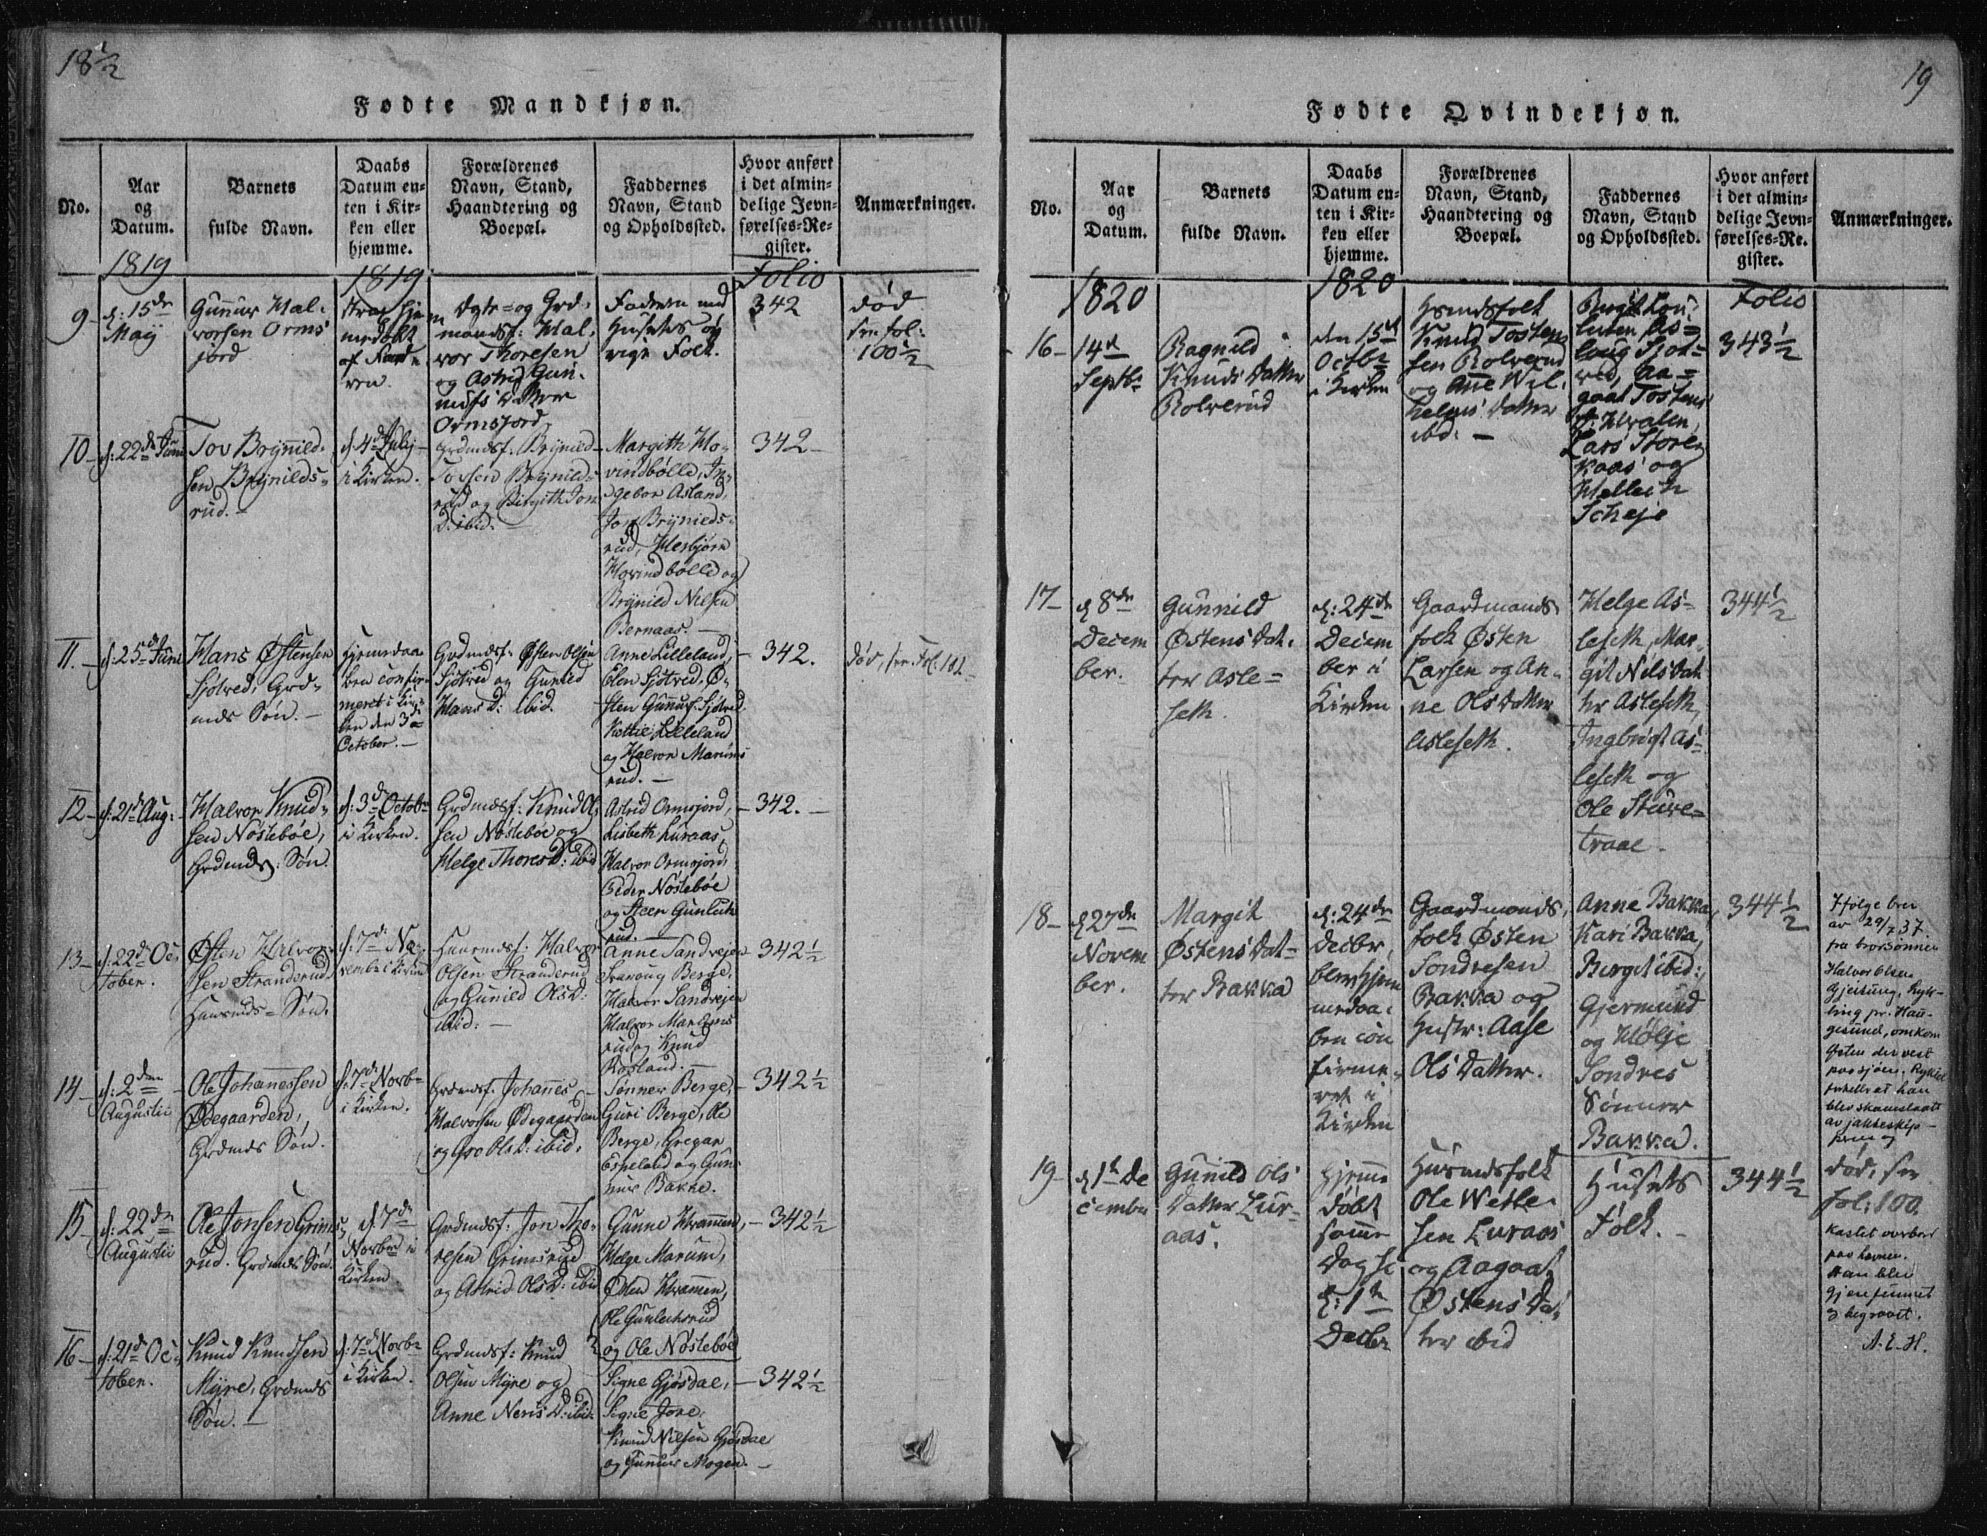 18½
Fødte Mandkjøn.
No.
Aar
og
Datum.
Barnets
fulde Navn.
Daabs
Datum en-
ten i Kir-
ken eller
hjemme.
Forældrenes
Navn, Stand,
Haandtering og
Boepæl.
Faddernes
Navn, Stand
og Opholdssted.
Hvor anført
i det almin-
delige Jevn-
førelses-Re-
gister.
Anmærkninger.
1819
1819
Folio
9-
d: 15de
May
Gunnur Hal-
vorsen Orms
jord
strax hjem
medøbt
af Fad
ren.
og Grd.
mandsf: Hal,
vor Thoresen
og Astrid Gun-
nulfs Datter
Ormsjord
Faderen med
Husets og
vige Folk.
342
død
see fol:
100½
10-
d: 22de Juni
Tov Brynild-
sen Brynilds-
rud.-
d. 4de July
i Kirken.
Grdmdsf: Brynild
Tovsen Brynild-
rud og Birgith Jon
D: ibid.
Margith Ho-
vindbølle, In-
gebor Asland,
Jon Brynilds-
rud, Herbjørn
Hovindbølle og
Brynild Nilsen
Bernaas.-
342-
11.-
d: 25de Juni
Hans Østensen
Sjotved, Grd-
mds Søn.-
hjemmdaa-
ben confir-
meret i Kir-
ken den 3de
October.-
Grdmdsf: Østen Olsen
Sjotved og Gunild
Hans D: ibid.
Anne Lilleland,
Elen Sjotved, Ø-
sten Gunulf. Sjotved
Kittil Lilleland
og Halvor Marums
rud.-
342.
død, see Fol. 102
12-
d: 21de Aug:
Halvor Knud-
sen Nøstebøe,
Grdmds: Søn.
d: 3de Octob-
i Kirken.
Grdmdsf: Knud Ol-
sen Nøstebøe og
Helge Thores D: ibid
Astrid Ormsjord,
Lisbeth Luraas,
Halvor Ormsjord,
Peder Nøstebøe
og Steen Gunleik
rud.-
342.-
13-
d: 22de Oc-
tober.
Østen Halvor-
sen Stranderud,
Huusmds= Søn.
d: 7de No-
vembr i Kirken
Huusmdsf: Halvor
Olsen Stranderud
og Gunild Ols D:
ibid:-
Anne Sandvejen
Tranoug Berge,
Halvor Sandvejen
Halvor Marums
rud og Knud
Rosland.-
342½
14-
d: 2den
Augustii
Ole Johannessen
Ødegaarden,
Grdmds Søn.
d: 7de Novb-
i Kirken.
Grdmdsf. Johannes
Halvorsen Ødegaarden
og Gro Ols D: ibid,
Tønner Berge,
Guri Berge, Ole
Berge, Gregar
Espeland og Gun-
nur Bakke.
342½
15-
d: 22de
Augustii
Ole Jonsen Grims
rud. Grdmds Søn.
d. 7de
Novbr i
Kirken.
Grdmdsf: Jon Tho-
resen Grimsrud
og Astrid Ols D: ibid
Gunne Krammen,
Helge Marum,
Østen Krammen,
Ole Gunleiksrud
og Ole Nøstebøe
342½
16-
d: 21de Oc-
tober.
Knud Knudsen
Myre, Grdmds
Søn.-
d: 7de Novbr
i Kirken.
Grdmdsf: Knud
Olsen Myre og
Anne Neris D: ibid.
Signe Gjøsdal,
Signe Jore,
Knud Nilsen Gjøsdal
og Gunnur Mogen.-
342½
19
Fødte Qvindekjøn.
No.
Aar
og
Datum.
Barnets
fulde Navn.
Daabs
Datum en-
ten i Kir-
ken eller
hjemme.
Forældrenes
Navn, Stand,
Haandtering og
Boepæl.
Faddernes
Navn, Stand
og Opholdssted.
Hvor anført
i det almin-
delige Jevn-
førelses-Re-
gister.
Anmærkninger.
1820
1820
Folio
16-
14de
Septbr
Ragnild
Knuds Datter
Rolverud
den 15de
Octbr
i Kirken
Huusmdsfolk
Knud Tosten-
sen Rolverud
og Anne Wil-
helms Datter
ibid:-
Birgit
As-
laug Sjot-
ved, Aa-
gaat Tostens
D. Hvalen,
Lars Store
Raas og
Helleik
Scheje
343½
17-
d 8de
Decem
ber.
Gunnild
Østens Dat-
ter Asle-
seth.
d: 24de
Decem
ber i
Kirken
Gaardmands
folk Østen
Larsen og An-
ne Ols Datter
Asleseth.
Helge As-
leseth, Mar-
git Nils Dat
ter Asleseth,
Ingbrigt As-
leseth og
Ole Sture-
traae.
344½
18-
d 27de
Novem
ber.
Margit
Østens Dat-
ter Bakka
d: 24de
Decbr,
blev hjem
medaa-
ben con
firme-
ret i
Kirken
Gaardmands,
folk Østen
Sondresen
Bakka og
Hustr: Aase
Ols Datter.
Anne Bakka,
Kari Bakka,
Bergit ibid:,
Gjermund
og Hølje
Sondres
Sønner
Bakka.
344½
Ifølge brev
av 29/7 37.
fra brorsønnen
Halvor Olsen
Gjeitung, Ryk-
ling pr. Hau-
gesund, omkom
Østen der vest
paa sjøen. Ryktet
fortelte at han
blev skamslaatt
av jakteskip-
peren og
19-
d 1te De
cember
Gunild Ols
Datter Lur-
aas.
Hjemme
døbt
samme
Dag se
d: 1te
Decbr
Husmdsfolk
Ole Wetle-
sen Luraas
og Aagaat
Østens Dat-
ter ibid
Husets
Folk.-
344½
død, see
fol: 100
kastet overbord
paa havnen.
Han blev
gjenfunnet
& begravet.
A. E. H.